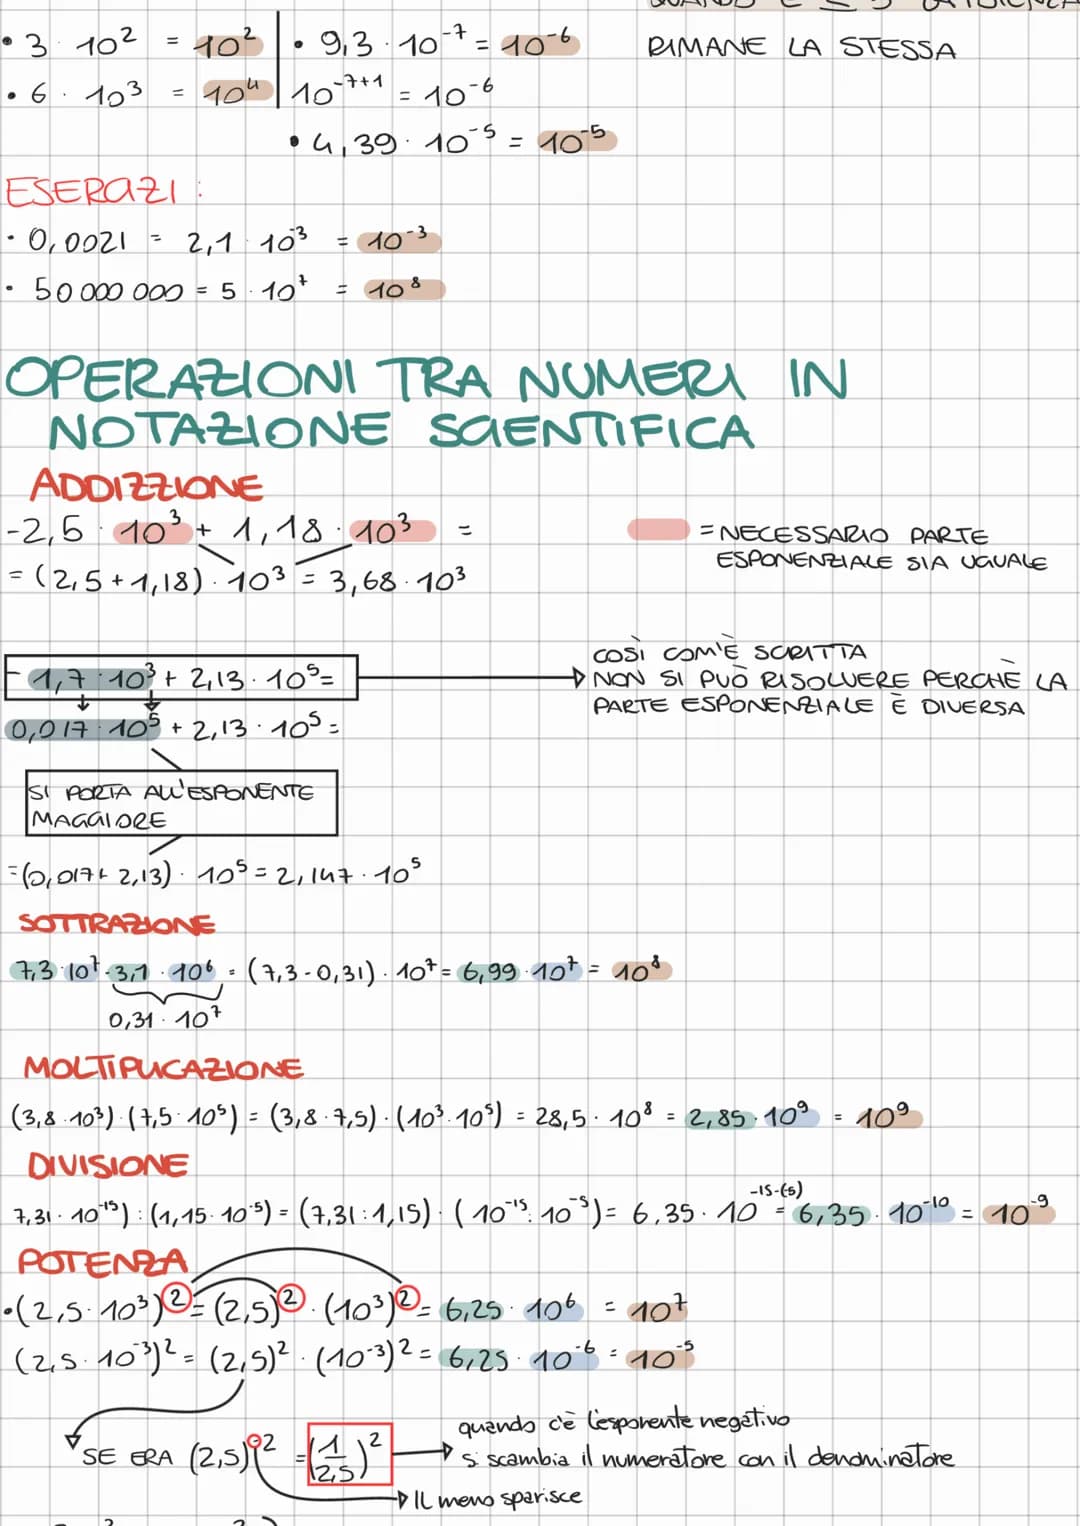 RIMANE LA STESSA
• 3 · 10² = 10²
• 6 · 10³ = 10⁴
• 9,3 · 10⁻⁷ = 10⁻⁶
10⁻⁷⁺¹ = 10⁻⁶
• 4,39 · 10⁻⁵ = 10⁻⁵
ESERCIZI:
· 0,0021 = 2,1 · 10⁻³ = 10⁻³
· 50 000 000 = 5 · 10⁷ = 10⁸
OPERAZIONI TRA NUMERI IN
NOTAZIONE SCIENTIFICA
ADDIZZIONE
-2,5 · 10³ + 1,18 · 10³ =
= (2,5 + 1,18) · 10³ = 3,68 · 10³
= NECESSARIO PARTE
ESPONENZIALE SIA UGUALE
- 1,7 · 10³ + 2,13 · 10⁵ =
COSÌ COM'È SCRITTA
NON SI PUÒ RISOLVERE PERCHÈ LA
PARTE ESPONENZIALE È DIVERSA
0,017 · 10⁵ + 2,13 · 10⁵ =
SI PORTA ALL'ESPONENTE
MAGGIORE
= (0,017 + 2,13) · 10⁵ = 2,147 · 10⁵
SOTTRAZIONE
7,3 · 10⁷ - 3,1 · 10⁶ = (7,3 - 0,31) · 10⁷ = 6,99 · 10⁷ = 10⁸
0,31 · 10⁷
MOLTIPLICAZIONE
(3,8 · 10³) · (7,5 · 10⁵) = (3,8 · 7,5) · (10³ · 10⁵) = 28,5 · 10⁸ = 2,85 · 10⁹ = 10⁹
DIVISIONE
7,31 · 10⁻¹⁵) : (1,15 · 10⁻⁵) = (7,31 : 1,15) · (10⁻¹⁵ : 10⁻⁵) = 6,35 · 10⁻¹⁵⁻⁽⁻⁵⁾ = 6,35 · 10⁻¹⁰ = 10⁻⁹
POTENZA
• (2,5 · 10³)² = (2,5)² · (10³)² = 6,25 · 10⁶ = 10⁷
(2,5 · 10⁻³)² = (2,5)² · (10⁻³)² = 6,25 · 10⁻⁶ = 10⁻⁵
SE ERA (2,5)⁻² = (1/2,5)²
quando c'è l'esponente negativo
si scambia il numeratore con il denominatore
IL meno sparisce